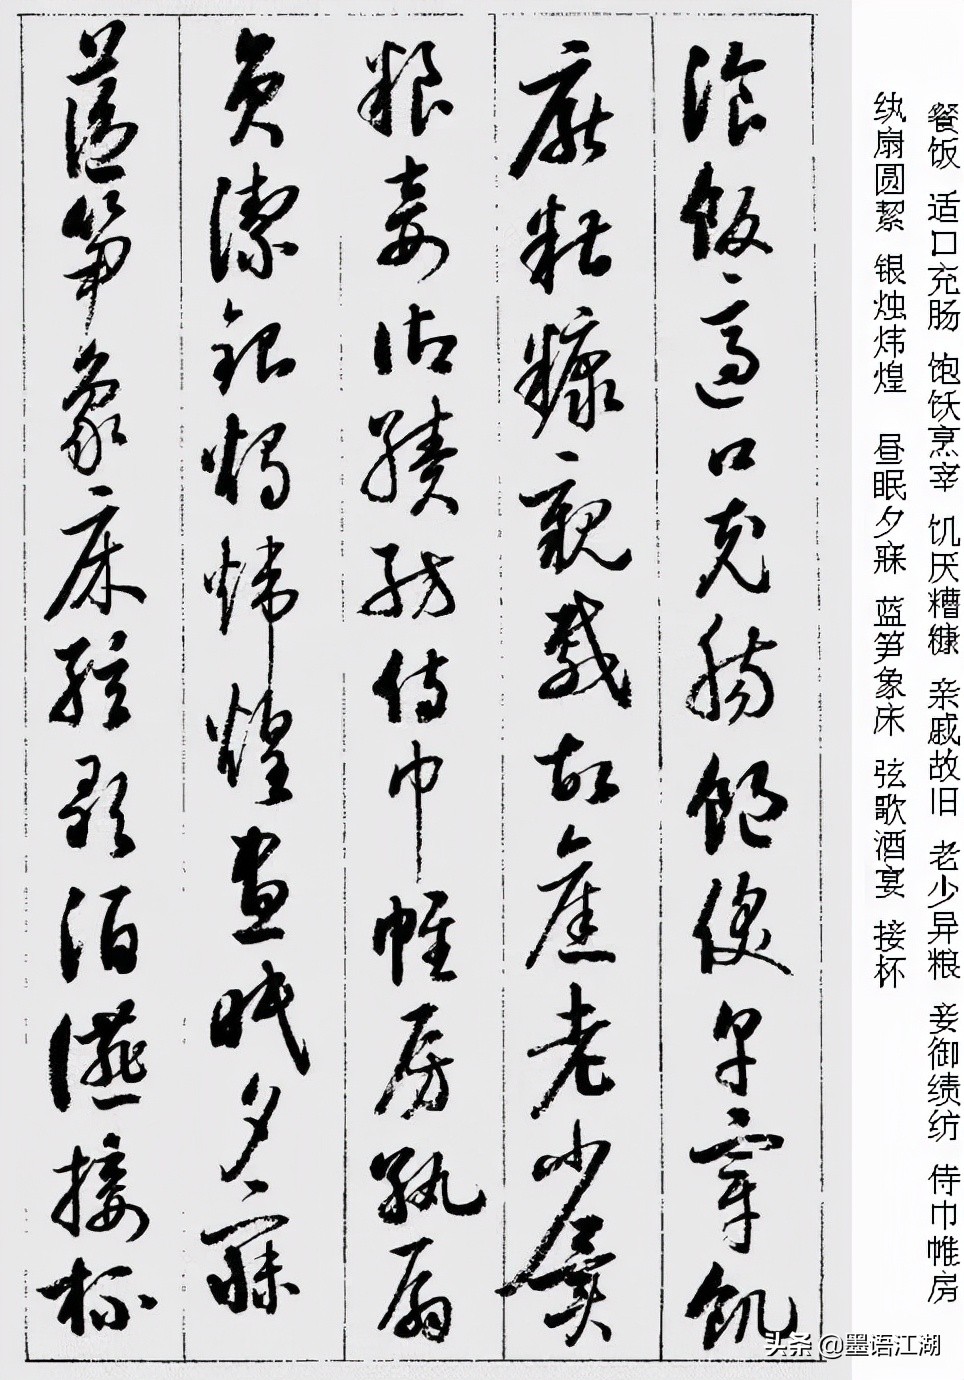 餐饭 适口充肠 饱饫烹宰 饥厌糟糠 亲戚故旧 老少异粮 妾御绩纺 侍巾帷房
纨扇圆絜 银烛炜煌 昼眠夕寐 蓝笋象床 弦歌酒宴 接杯
湌飯適口充腸飽飫烹宰飢
厭糟糠親戚故舊老少異
粮妾御績紡侍巾帷房紈扇
員潔銀燭煒煌晝眠夕寐
藍笋象床弦歌酒讌接杯
头条 @墨语江湖